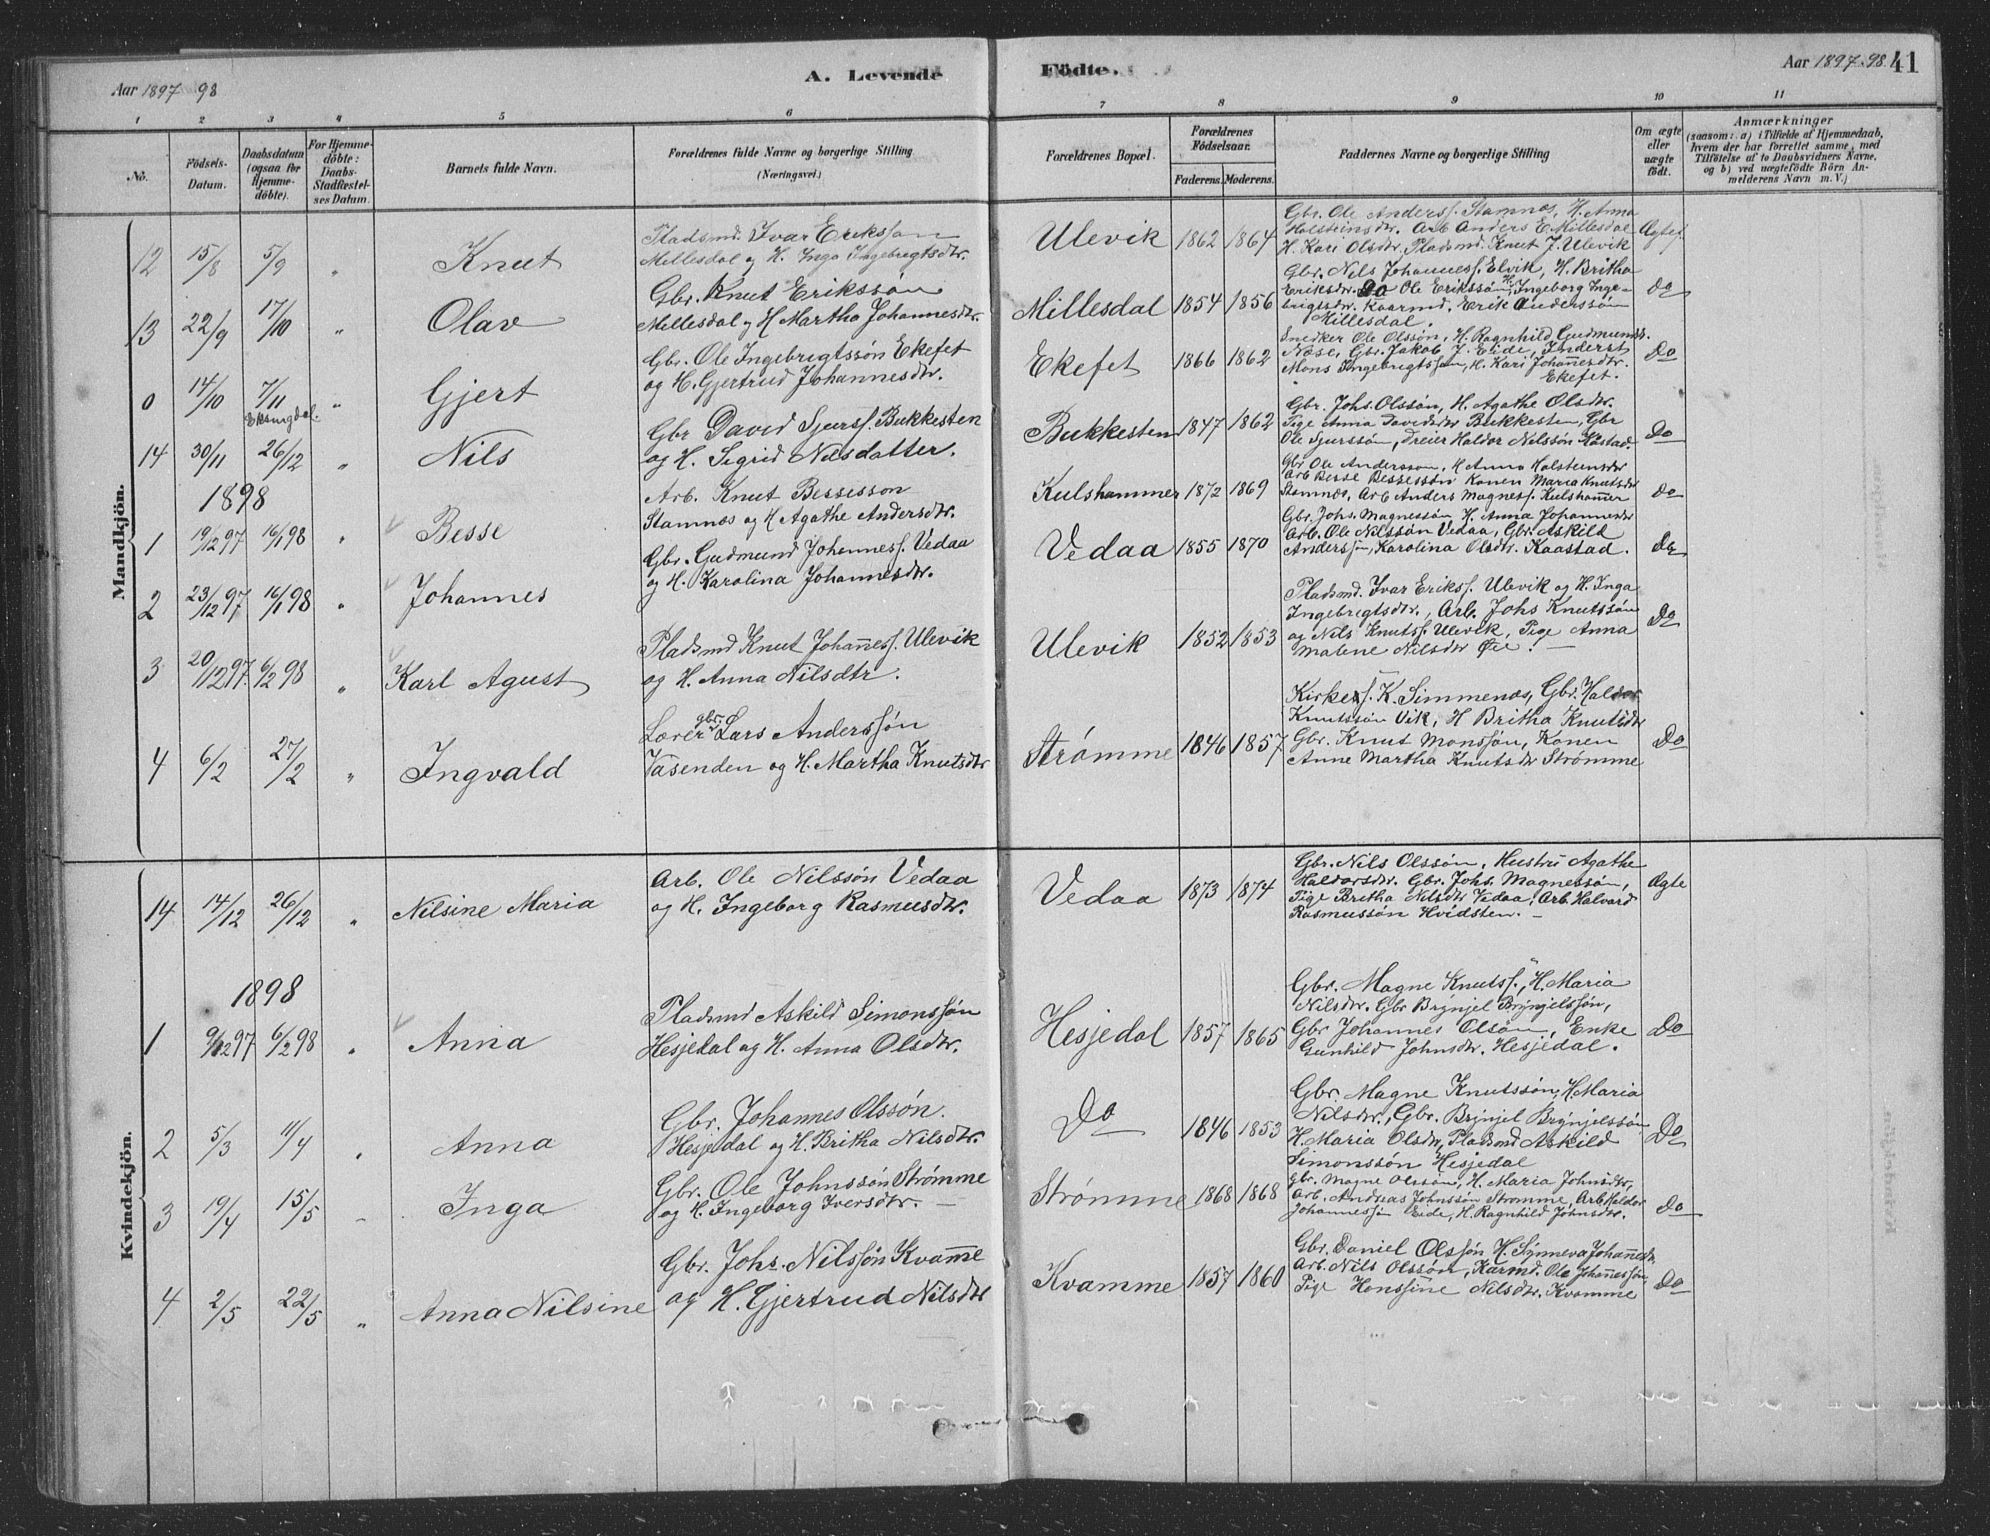 Aar 1897 98
A. Levende
Födte.
Aar 1897-98. 41
1 2 3 4 5 6 7 8 9 10 11
No.
Födsels-
Datum.
Daabsdatum
(ogsaa for
Hjemme-
döbte).
For Hjemme-
döbte:
Daabs-
Stadfæstel-
ses Datum.
Barnets fulde Navn.
Forældrenes fulde Navne og borgerlige Stilling
(Næringsvei.)
Forældrenes Bopæl.
Forældrenes
Födselsaar.
Faderens. Moderens.
Faddernes Navne og borgerlige Stilling
Om ægte
eller
uægte
födt.
Anmærkninger
(saasom: a) i Tilfælde af Hjemmedaab,
hvem der har forrettet samme, med
Tilföielse af to Daabsvidners Navne,
og b) ved uægtefödte Börn An-
melderens Navn m. V.)
Mandkjön.
12 15/8 5/9 " Knut
Pladsmd. Ivar Eriksson
Millesdal og H. Inga Ingebrigtsdtr.
Ulevik 1862 1864
Gbr. Ole Anderss. Stamnes, H. Anna
Holsteinsdtr. Arb Anders E Millesdal
H. Kari Olsdtr. Pladsmd. Knut J. Ulevik
Ægtef.
13 22/9 17/10 " Olav
Gbr. Knut Eriksson
Millesdal og H Martha Johannesdtr.
Millesdal 1854 1856
Gbr. Nils Johanness. Elvik, H. Britha
Eriksdtr. Do Ole Eriksson, H Ingeborg Inge-
brigtsdtr. Kaarmd. Erik Andersson
Millesdal.
do
0 14/10 7/11 " Gjert
Eksingdal.
Gbr. Ole Ingebrigtssön Ekefet
og H. Gjertrud Johannesdtr.
Ekefet 1866 1862
Snedker Ole Olssön, H. Ragnhild Gudmunds.
Nese, Gbr. Jakob J. Eide, Inderst
Mons Ingebrigtsson, H. Kari Johannesdtr.
Ekefet.
Do
14 30/11 26/12 " Nils
Gbr David Sjurss. Bukkesten
og H. Sigrid Nilsdatter.
Bukkesten 1847 1862
Gbr. Johs. Olssön, H. Agathe Olsdtr.
Pige Anna Davidsdtr Bukkesten, Gbr
Ole Sjurssön, Dreier Haldor Nilssön Kastad.
Do
1898
1 19/12 97 16/1 98 " Besse
Arb. Knut Bessesson
Stamnes og H Agathe Andersdtr.
Kulshammer 1872 1869
Gbr Ole Andersson, H Anna Holsteinsdtr
Arb Besse Bessessön Konen Maria Knutsdtr
Stamnes, Arb Anders Magness. Kulshammer
do
2 23/12 97 16/1 98 " Johannes
Gbr. Gudmund Johanness. Vedaa
og H. Karolina Johannesdtr.
Vedaa 1855 1870
Gbr. Johs. Magnessön H. Anna Johannesdtr
Arb. Ole Nilssön Vedaa, Gbr. Askild
Anderssön, Karolina Olsdtr. Kaastad.
Do
3 20/12 97. 6/2 98 " Karl Agust
Pladsmd Knut Johanness. Ulevik
og H. Anna Nilsdtr.
Ulevik 1852 1853
Pladsmd. Ivar Erikss. Ulevik og H. Inga
Ingebrigtsdtr., Arb. Johs Knutssön
og Nils Knutss. Ulevik, Pige Anna
Malene Nilsdtr Øie. —
Do
4 6/2 27/2 " Ingvald
Lærer gbr. Lars Anderssön
Vasenden og H. Martha Knutsdtr
Strømme 1846 1857
Kirkes. K. Simmenes, Gbr. Haldor
Knutssön Vik, H Britha Knutsdtr
Gbr. Knut Monssön, Konen
Anne Martha Knutsdtr Strømme
Do
Kvindekjön.
14 14/12 26/12 " Nilsine Maria
Arb. Ole Nilssön Vedaa
og H. Ingeborg Rasmusdtr.
Vedaa 1873 1874
Gbr. Nils Olssön, Hustru Agathe
Haldorsdtr. Gbr. Johs. Magnessön,
Pige Britha Nilsdtr Vedaa, Arb. Halvard
Rasmussön Hvidsten. —
Ægte
1898
1 9/12 97 6/2 98 " Anna
Pladsmd Askild Simonssön
Hesjedal og H. Anna Olsdtr.
Hesjedal 1857 1865
Gbr. Magne Knutss., H. Maria
Nilsdtr. Gbr Brynjel Brynjelssön,
Gbr Johannes Olsön, Enke
Gunhild Johnsdtr. Hesjedal.
Do
2 5/3 11/4 " Anna
Gbr. Johannes Olssön.
Hesjedal og H. Britha Nilsdtr.
Do 1846 1853
Gbr. Magne Knutssön, H Maria
Nilsdtr., Gbr. Brynjel Brynjelssön
H. Maria Olsdtr, Pladsmd Askild
Simonssön Hesjedal
Do
3 19/4 15/5 " Inga
Gbr. Ole Johnssön Strømme
og H. Ingeborg Iversdtr. —
Strømme 1868 1868
Gbr. Magne Olssön, H. Maria Johnsdtr,
Arb. Andreas Johnssön Strømme, Arb Haldor
Johannessön Eide, H. Ragnhild Johnsdtr.
Do
4 2/5 22/5 " Anna Nilsine
Gbr. Johs. Nilssön Kvamme
og H. Gjertrud Nilsdtr
Kvamme 1857 1860
Gbr. Daniel Olssön H. Synneva Johannesdtr.
Arb. Nils Olssön, Karmd. Ole Johannessön,
Pige Hanssine Nilsdtr. Kvamme
Do